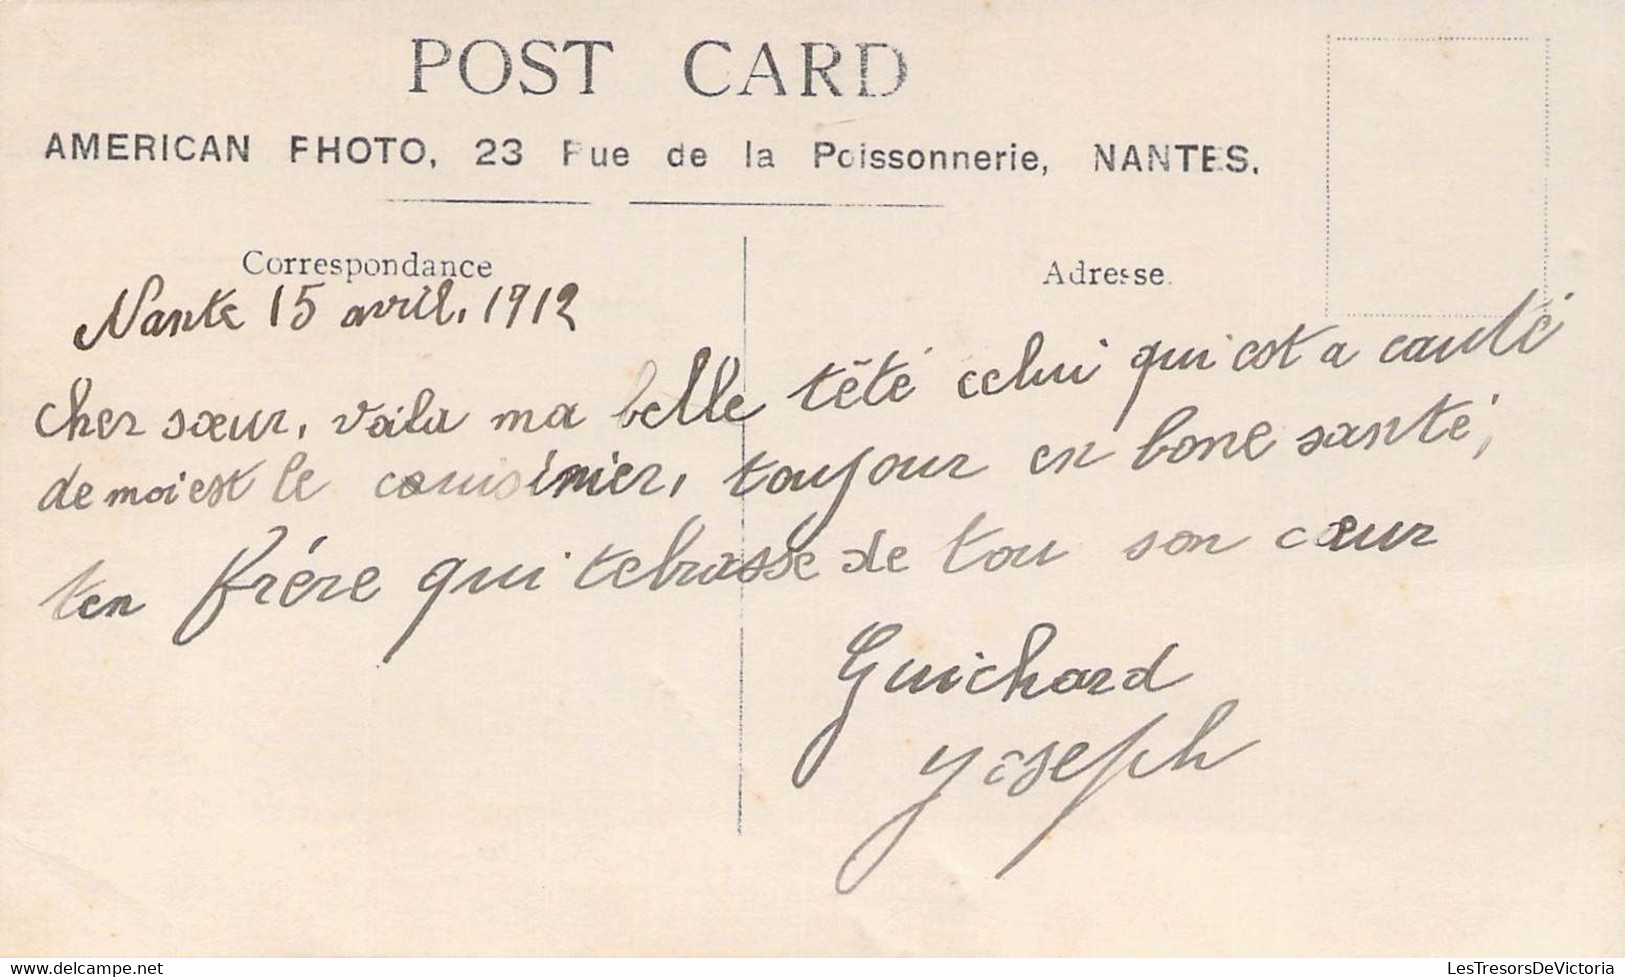 POST CARD
AMERICAN PHOTO, 23 Rue de la Poissonnerie, NANTES.
Correspondance
Adresse.
Nante 15 avril, 1912
cher sœur, voila ma belle tété celui qui est a cauté
de moi est le couisinier, toujour en bone santé,
ten frére qui tebrasse de tou son cœur
Guichard
Joseph
LesTresorsDeVictoria